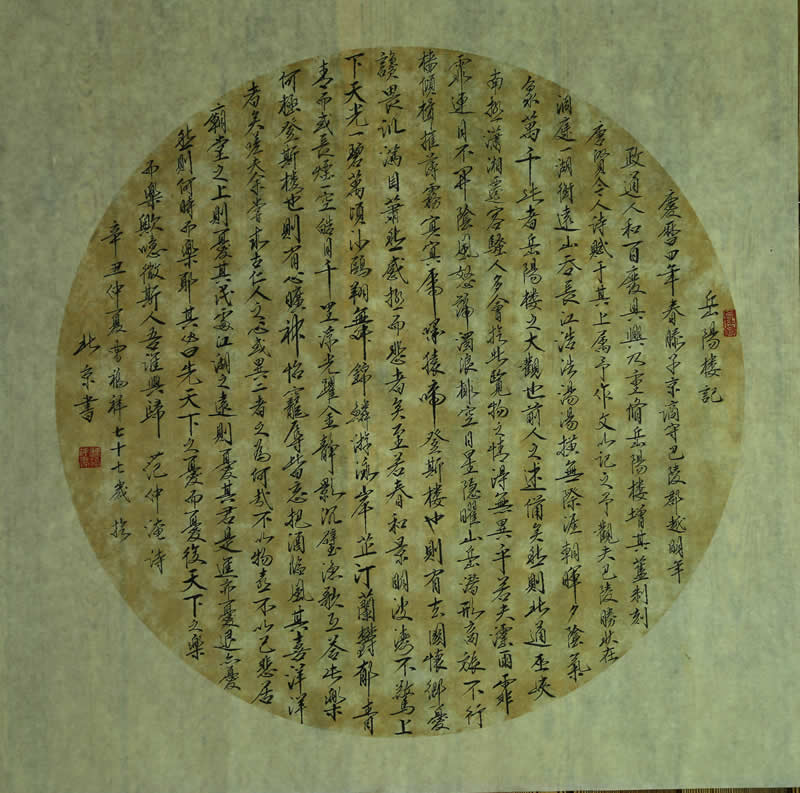 岳陽楼記
慶曆四年春滕子京謫守巴陵郡越明年
政通人和百廢具興乃重脩岳陽楼增其舊制刻
唐賢今人詩賦于其上属予作文以記之予觀夫巴陵勝狀在
洞庭一湖銜遠山吞長江浩浩湯湯橫無際涯朝暉夕陰氣
象萬千此者岳陽楼之大觀也前人之述備矣然則北通巫峽
南極瀟湘遷客騷人多會於此覽物之情得無異乎若夫霪雨霏
霏連月不開陰風怒號濁浪排空日星隱曜山岳潛形商旅不行
檣傾楫摧薄霧冥冥虎嘯猿啼登斯楼也則有去國懷鄉憂
讒畏譏滿目蕭然感極而悲者矣至若春和景明波瀾不驚上
下天光一碧萬頃沙鷗翔舞錦鱗游泳岸芷汀蘭鬱郁青
青而或長煙一空皓月千里浮光躍金靜影沉璧漁歌互答此樂
何極登斯楼也則有心曠神怡寵辱皆忘把酒臨風其喜洋洋
者矣嗟夫余嘗求古仁人之心或異二者之為何哉不以物喜不以己悲居
廟堂之上則憂其民處江湖之遠則憂其君是進亦憂退亦憂
然則何時而樂耶其必曰先天下之憂而憂後天下之樂
而樂歟噫微斯人吾誰與歸 范仲淹詩
辛丑仲夏福祥七十七歲於
北京書